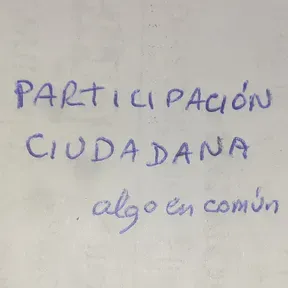 PARTICIPACIÓN
CIUDADANA
algo en común